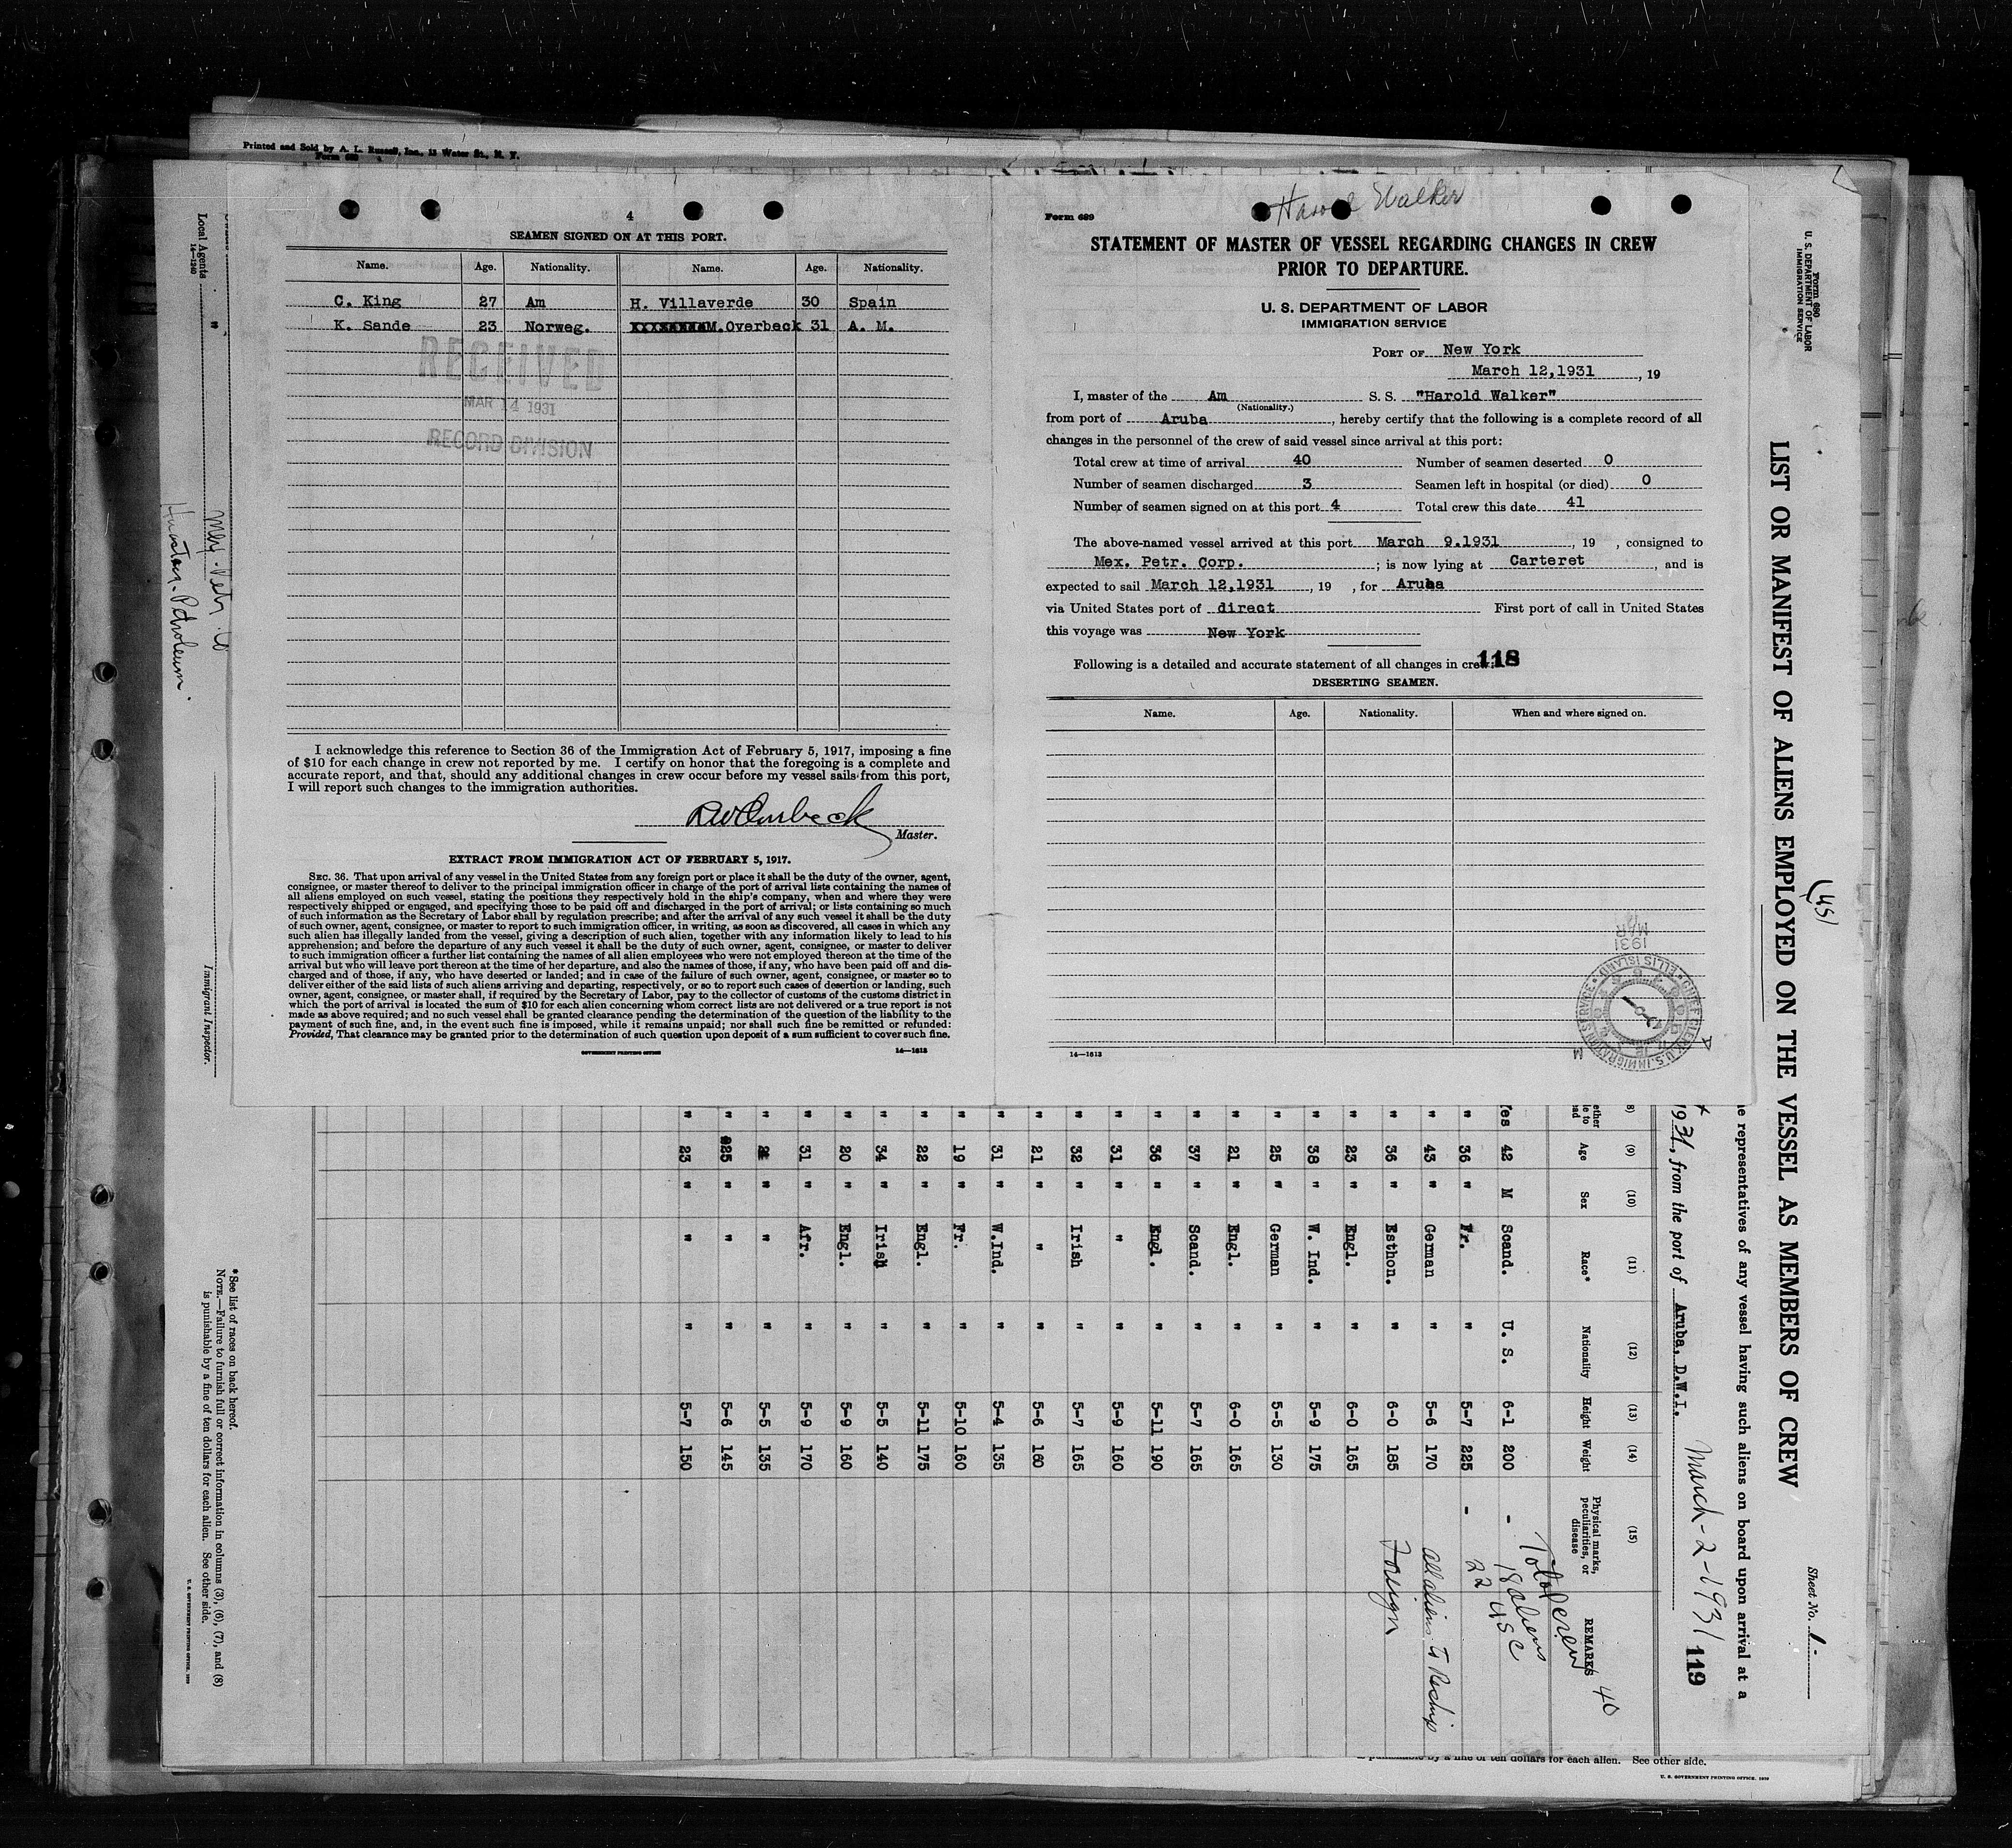 Printed and Sold by A. L. Russell, Inc., 13 Water St., N. Y.
Form 689
4
SEAMEN SIGNED ON AT THIS PORT.
Name. Age. Nationality. Name. Age. Nationality.
C. King 27 Am H. Villaverde 30 Spain
K. Sande 23 Norweg. M.Overbeck 31 A. M.
RECEIVED
MAR 14 1931
RECORD DIVISION
I acknowledge this reference to Section 36 of the Immigration Act of February 5, 1917, imposing a fine
of $10 for each change in crew not reported by me. I certify on honor that the foregoing is a complete and
accurate report, and that, should any additional changes in crew occur before my vessel sails from this port,
I will report such changes to the immigration authorities.
Master.
EXTRACT FROM IMMIGRATION ACT OF FEBRUARY 5, 1917.
SEC. 36. That upon arrival of any vessel in the United States from any foreign port or place it shall be the duty of the owner, agent,
consignee, or master thereof to deliver to the principal immigration officer in charge of the port of arrival lists containing the names of
all aliens employed on such vessel, stating the positions they respectively hold in the ship's company, when and where they were
respectively shipped or engaged, and specifying those to be paid off and discharged in the port of arrival; or lists containing so much
of such information as the Secretary of Labor shall by regulation prescribe; and after the arrival of any such vessel it shall be the duty
of such owner, agent, consignee, or master to report to such immigration officer, in writing, as soon as discovered, all cases in which any
such alien has illegally landed from the vessel, giving a description of such alien, together with any information likely to lead to his
apprehension; and before the departure of any such vessel it shall be the duty of such owner, agent, consignee, or master to deliver
to such immigration officer a further list containing the names of all alien employees who were not employed thereon at the time of the
arrival but who will leave port thereon at the time of her departure, and also the names of those, if any, who have been paid off and dis-
charged and of those, if any, who have deserted or landed; and in case of the failure of such owner, agent, consignee, or master so to
deliver either of the said lists of such aliens arriving and departing, respectively, or so to report such cases of desertion or landing, such
owner, agent, consignee, or master shall, if required by the Secretary of Labor, pay to the collector of customs of the customs district in
which the port of arrival is located the sum of $10 for each alien concerning whom correct lists are not delivered or a true report is not
made as above required; and no such vessel shall be granted clearance pending the determination of the question of the liability to the
payment of such fine, and, in the event such fine is imposed, while it remains unpaid; nor shall such fine be remitted or refunded:
Provided, That clearance may be granted prior to the determination of such question upon deposit of a sum sufficient to cover such fine.
GOVERNMENT PRINTING OFFICE 14—1613
Form 689
Harold Walker
STATEMENT OF MASTER OF VESSEL REGARDING CHANGES IN CREW
PRIOR TO DEPARTURE.
U. S. DEPARTMENT OF LABOR
IMMIGRATION SERVICE
PORT OF New York
March 12,1931, 19
I, master of the Am S. S. "Harold Walker"
(Nationality.)
from port of Aruba, hereby certify that the following is a complete record of all
changes in the personnel of the crew of said vessel since arrival at this port:
Total crew at time of arrival 40 Number of seamen deserted 0
Number of seamen discharged 3 Seamen left in hospital (or died) 0
Number of seamen signed on at this port 4 Total crew this date 41
The above-named vessel arrived at this port March 9.1931, 19 , consigned to
Mex. Petr. Corp. ; is now lying at Carteret, and is
expected to sail March 12,1931, 19 , for Aruba
via United States port of direct First port of call in United States
this voyage was New York
Following is a detailed and accurate statement of all changes in crew: 118
DESERTING SEAMEN.
Name. Age. Nationality. When and where signed on.
MAR
1931
CHIEF CLERK, U.S. IMMIGRATION SERVICE • ELLIS ISLAND
14—1613
Form 680
U. S. DEPARTMENT OF LABOR
IMMIGRATION SERVICE
Sheet No. 1-
LIST OR MANIFEST OF ALIENS EMPLOYED ON THE VESSEL AS MEMBERS OF CREW
(45)
representatives of any vessel having such aliens on board upon arrival at a
1931, from the port of Aruba, D.W.I. March-2-1931 119
(9) (10) (11) (12) (13) (14) (15)
Age Sex Race* Nationality Height Weight Physical marks, peculiarities, or disease REMARKS
Yes 42 M Scand. U. S. 6-1 200 -
" 36 " Fr. " 5-7 225 -
" 43 " German " 5-6 170
" 36 " Esthon. " 6-0 185
" 23 " Engl. " 6-0 165
" 38 " W. Ind. " 5-9 175
" 25 " German " 5-5 130
" 21 " Engl. " 6-0 165
" 37 " Scand. " 5-7 165
" 36 " Engl. " 5-11 190
" 31 " " " 5-9 160
" 32 " Irish " 5-7 165
" 21 " " " 5-6 160
" 31 " W.Ind. " 5-4 135
" 19 " Fr. " 5-10 160
" 22 " Engl. " 5-11 175
" 34 " Irish " 5-5 140
" 20 " Engl. " 5-9 160
" 31 " Afr. " 5-9 170
" " " " 5-5 135
" 25 " " " 5-6 145
" 23 " " " 5-7 150
Total crew 40
18 aliens
22 USC
all aliens to Reship
Foreign
*See list of races on back hereof.
NOTE.—Failure to furnish full or correct information in columns (3), (6), (7), and (8)
is punishable by a fine of ten dollars for each alien. See other side.
U. S. GOVERNMENT PRINTING OFFICE
Local Agents
14—1240
Mex. Petr. Co
Huasteca Petroleum
Immigrant Inspector.
is punishable by a fine of ten dollars for each alien. See other side.
U. S. GOVERNMENT PRINTING OFFICE